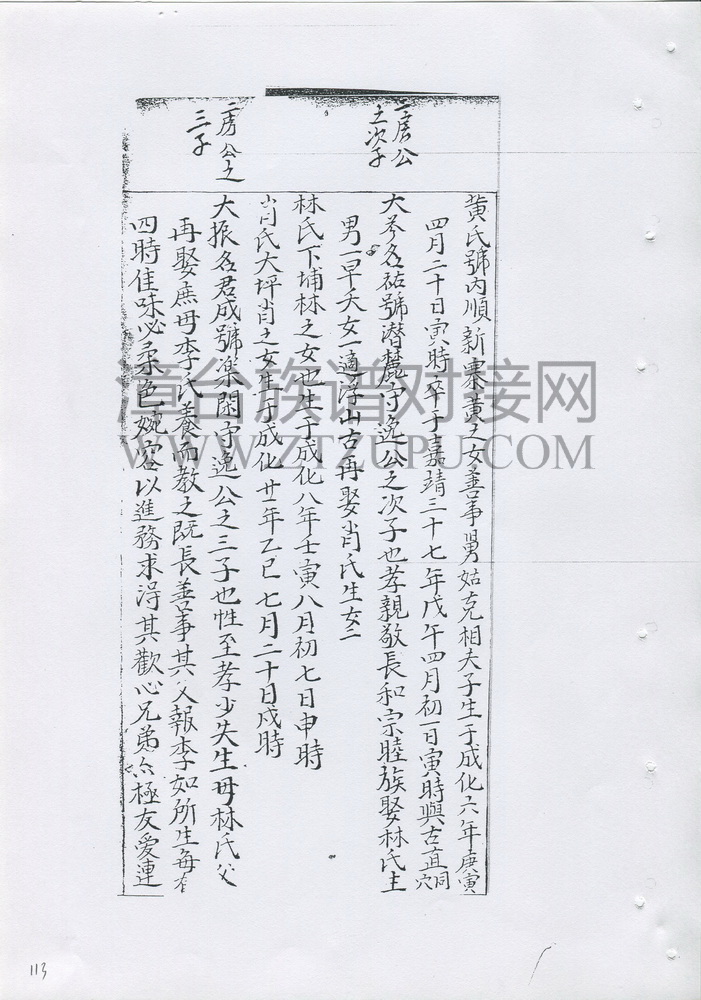 二房公
之次子
二房公之
三子
黄氏號内順新寨黄之女善事舅姑克相夫子生于成化六年庚寅
四月二十日寅時卒于嘉靖三十七年戊午四月初一日寅時與古直同穴
大參名祐號潜麓守逸公之次子也孝親敬長和宗睦族娶林氏生
男一早夭女一適浮山古再娶肖氏生女二
林氏下埔林之女也生于成化八年壬寅八月初七日申時
肖氏大坪肖之女生于成化廿一年乙巳七月二十日戌時
大振名君成號楽閑守逸公之三子也性至孝少失生毋林氏父
再娶庶毋李氏養而教之既長善事其父報李如所生每有
四時佳味必柔色婉容以進務求得其歡心兄弟亦極友愛連
漳台族谱对接网
WWW.ZTZUPU.COM
113